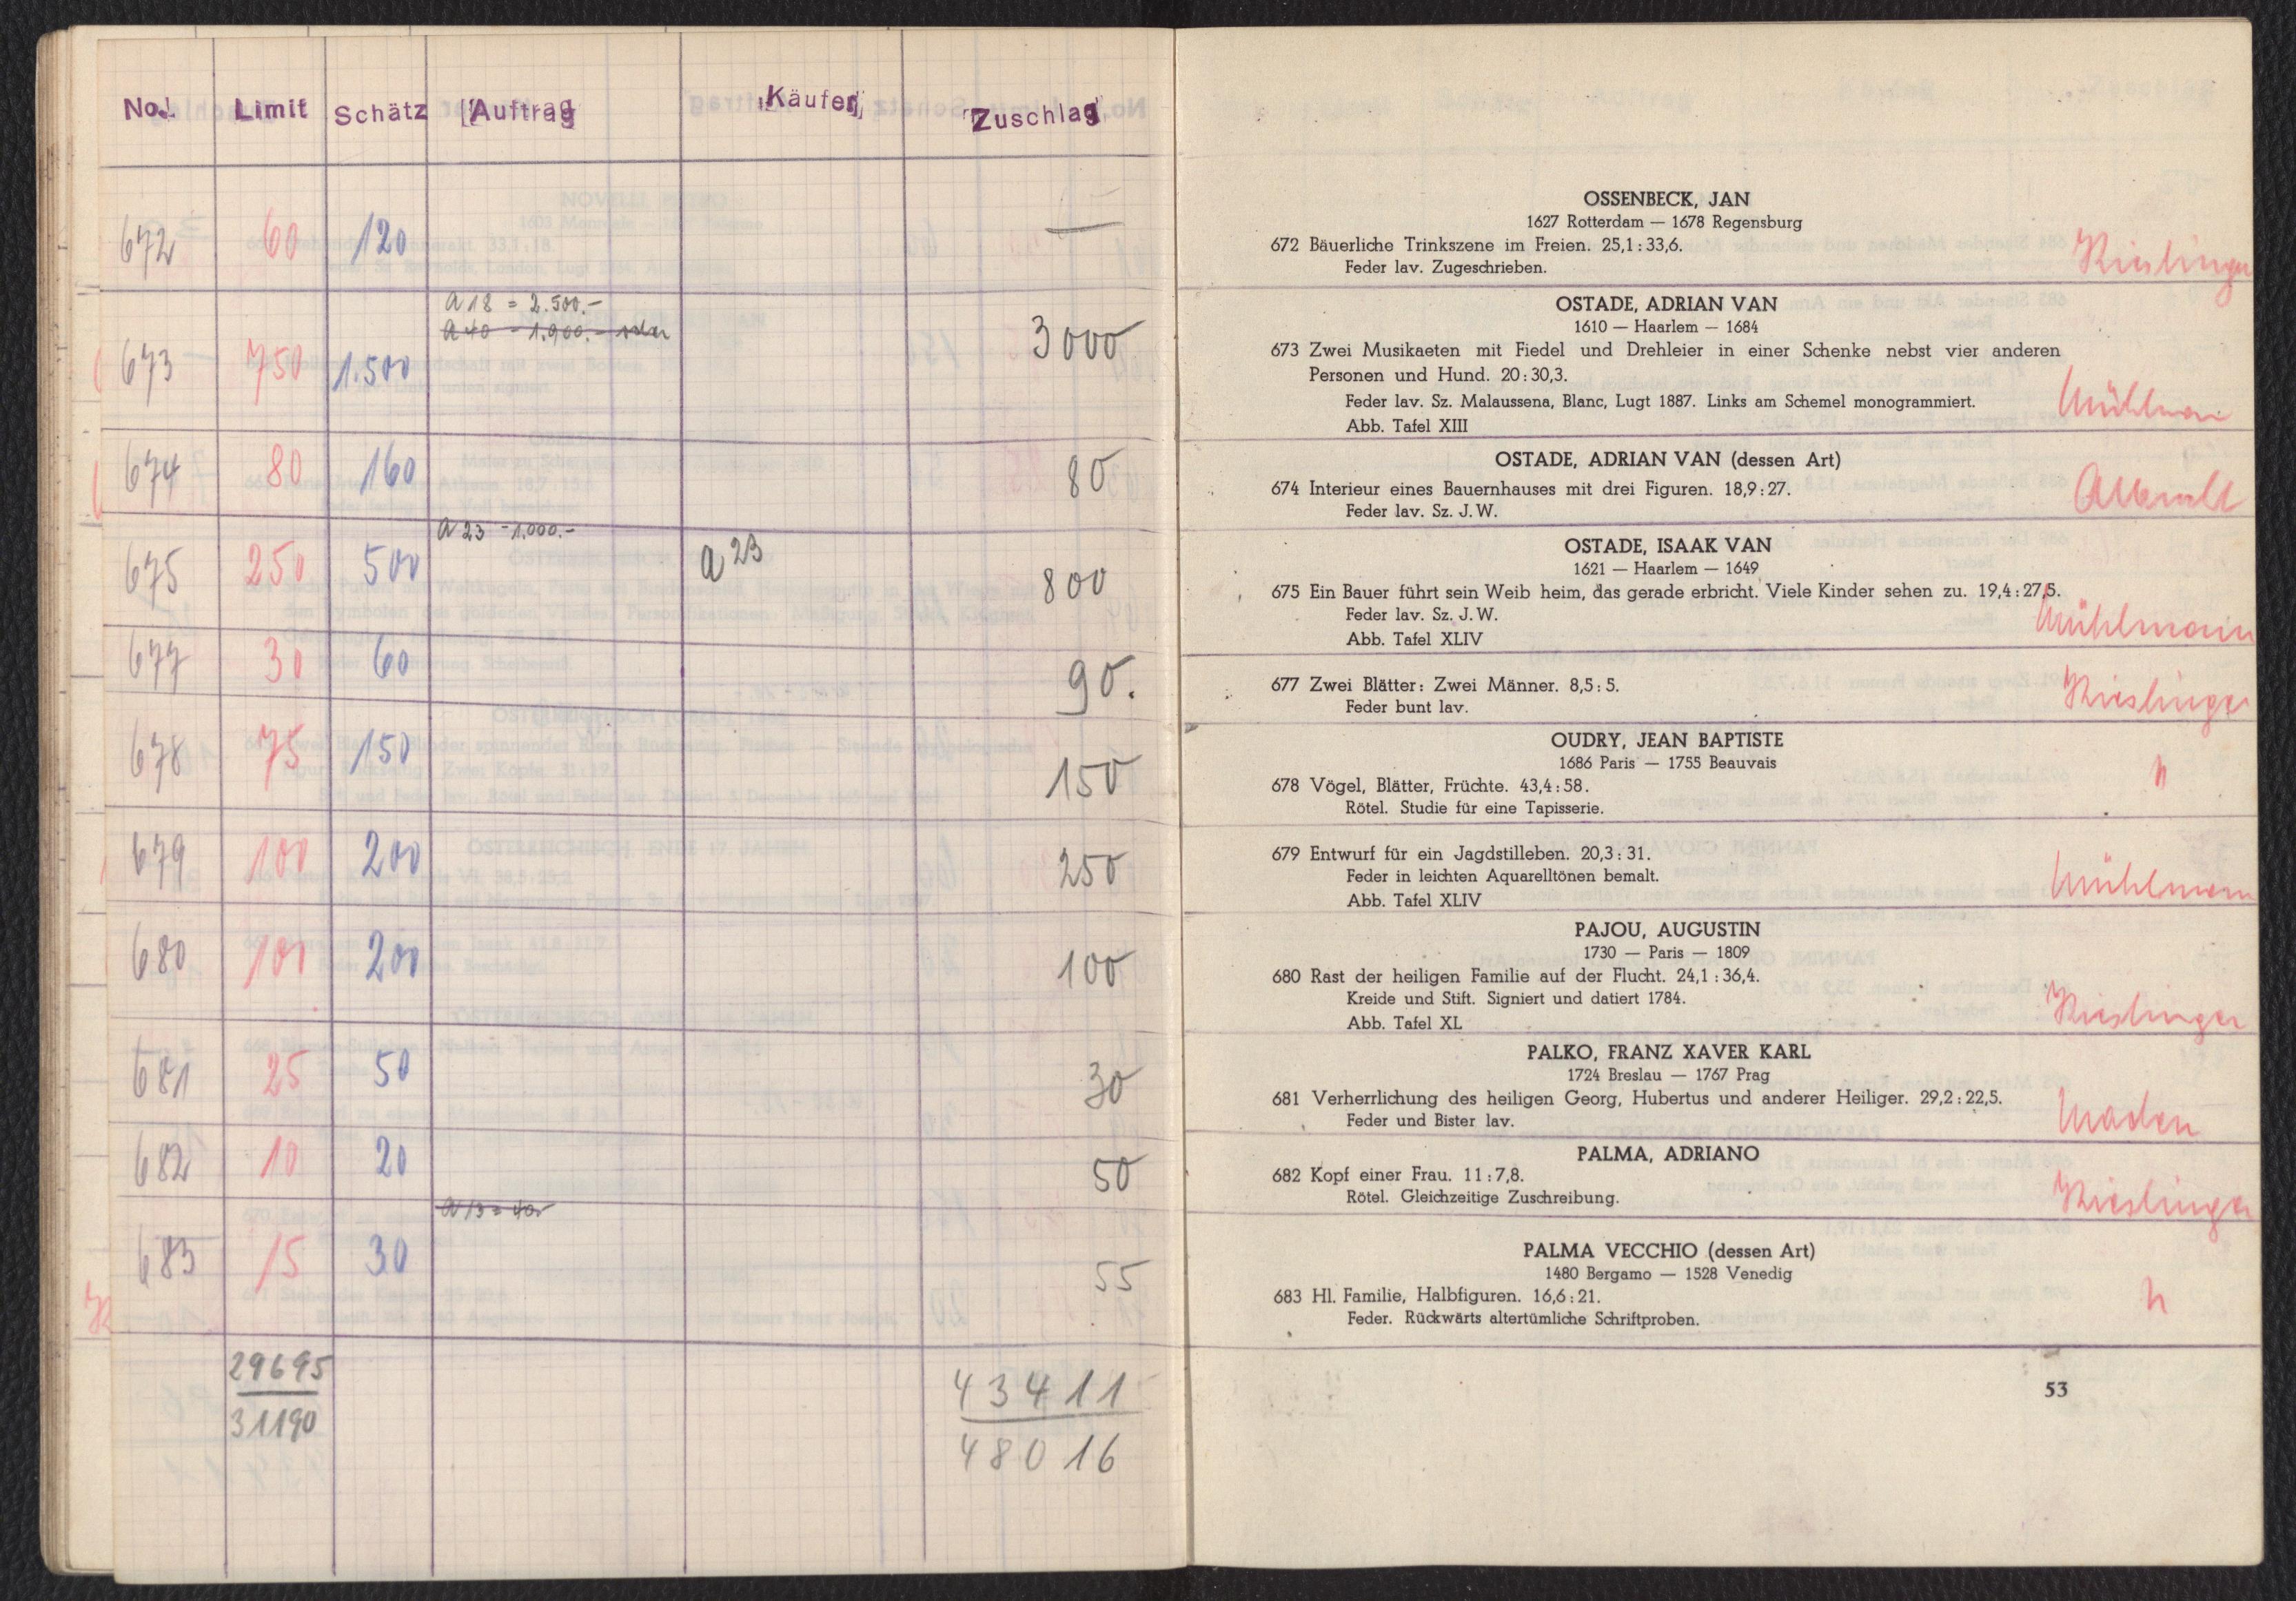 No. Limit Schätz Auftrag Käufer Zuschlag
672 60 120 —
a 18 = 2.500.-
a 40 - 1.900.- oder
673 750 1.500 3000
674 80 160 80
a 23 - 1.000.-
675 250 500 a 23 800
677 30 60 90.
678 75 150 150
679 100 200 250
680 100 200 100
681 25 50 30
682 10 20 50
683 15 30 55
29695 43411
31190 48016
OSSENBECK, JAN
1627 Rotterdam — 1678 Regensburg
672 Bäuerliche Trinkszene im Freien. 25,1 : 33,6. Kieslinger
Feder lav. Zugeschrieben.
OSTADE, ADRIAN VAN
1610 — Haarlem — 1684
673 Zwei Musikaeten mit Fiedel und Drehleier in einer Schenke nebst vier anderen
Personen und Hund. 20 : 30,3.
Feder lav. Sz. Malaussena, Blanc, Lugt 1887. Links am Schemel monogrammiert. Mühlmann
Abb. Tafel XIII
OSTADE, ADRIAN VAN (dessen Art)
674 Interieur eines Bauernhauses mit drei Figuren. 18,9 : 27.
Feder lav. Sz. J. W.
OSTADE, ISAAK VAN
1621 — Haarlem — 1649
675 Ein Bauer führt sein Weib heim, das gerade erbricht. Viele Kinder sehen zu. 19,4 : 27,5.
Feder lav. Sz. J. W. Mühlmann
Abb. Tafel XLIV
677 Zwei Blätter: Zwei Männer. 8,5 : 5. Kieslinger
Feder bunt lav.
OUDRY, JEAN BAPTISTE
1686 Paris — 1755 Beauvais
678 Vögel, Blätter, Früchte. 43,4 : 58. h
Rötel. Studie für eine Tapisserie.
679 Entwurf für ein Jagdstilleben. 20,3 : 31.
Feder in leichten Aquarelltönen bemalt. Mühlmann
Abb. Tafel XLIV
PAJOU, AUGUSTIN
1730 — Paris — 1809
680 Rast der heiligen Familie auf der Flucht. 24,1 : 36,4.
Kreide und Stift. Signiert und datiert 1784. Kieslinger
Abb. Tafel XL
PALKO, FRANZ XAVER KARL
1724 Breslau — 1767 Prag
681 Verherrlichung des heiligen Georg, Hubertus und anderer Heiliger. 29,2 : 22,5.
Feder und Bister lav.
PALMA, ADRIANO
682 Kopf einer Frau. 11 : 7,8.
Rötel. Gleichzeitige Zuschreibung. Kieslinger
PALMA VECCHIO (dessen Art)
1480 Bergamo — 1528 Venedig
683 Hl. Familie, Halbfiguren. 16,6 : 21. h
Feder. Rückwärts altertümliche Schriftproben.
53